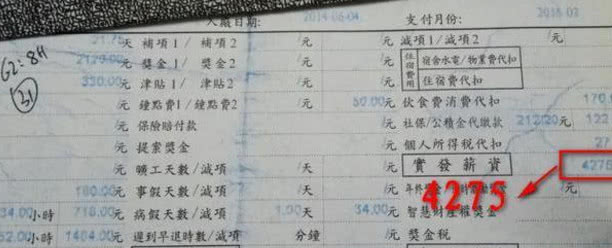 入廠日期: 2014-06-04 支付月份: 2018.03
21.75 天 補項1/ 補項2 /元 減項1/減項2
62:8H 2120.00 /元 獎金1/ 獎金2 /元 住宿費用 宿舍水電/物業費代扣
31 330.00 /元 津貼1/ 津貼2 /元 住宿費代扣
/元 鐘點費1/ 鐘點費2 50.00 /元 伙食費消費代扣 170.
/元 保險賠付款 /元 社保/公積金代繳款 212.20 /元 122
/元 提案獎金 /元 個人所得稅代扣 27
/元 曠工天數/減項 /天 /元 實發薪資 4275
180.00 /元 事假天數/減項 /天 /元 4275 /元
34.00 小時 718.00 /元 病假天數/減項 1.00 天 34.00 /元 智慧財產權獎金
52.00 小時 1464.00 /元 遲到早退時數/減項 分鐘 /元 獎金稅